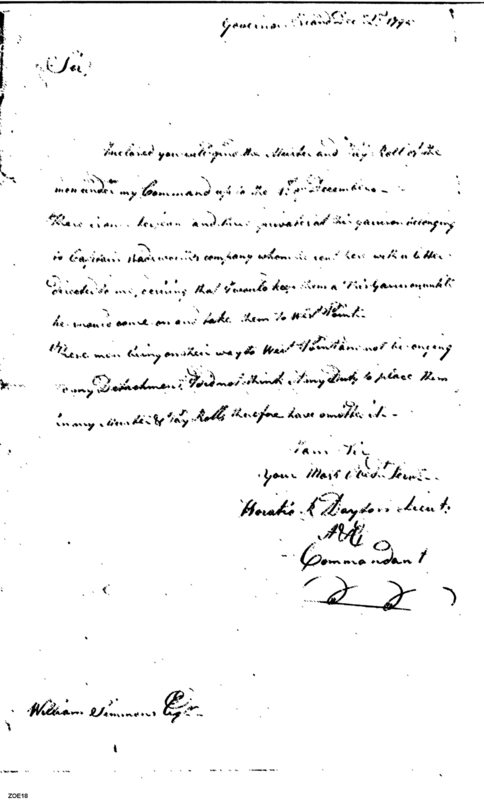 Governors Island Dec 21st 1795
Sir,
Inclosed you will find the Muster and Pay Roll of the
men under my Command up to the 1st of December —
There is one and three privates at this garrison belonging
to Captain company whom he sent here with a letter
directed to me, desiring that I would keep them at this Garrison until
he would come on and take them to West Point.
These men being on their way to West Point and not belonging
to my Detachment, I did not think it my Duty to place them
in my Muster & Pay Rolls therefore have omitted it —
I am Sir
Your Most Obedt Servt
Horatio R Dayton Lieut
A&E
Commandant
William Simmons Esqr
ZOE18